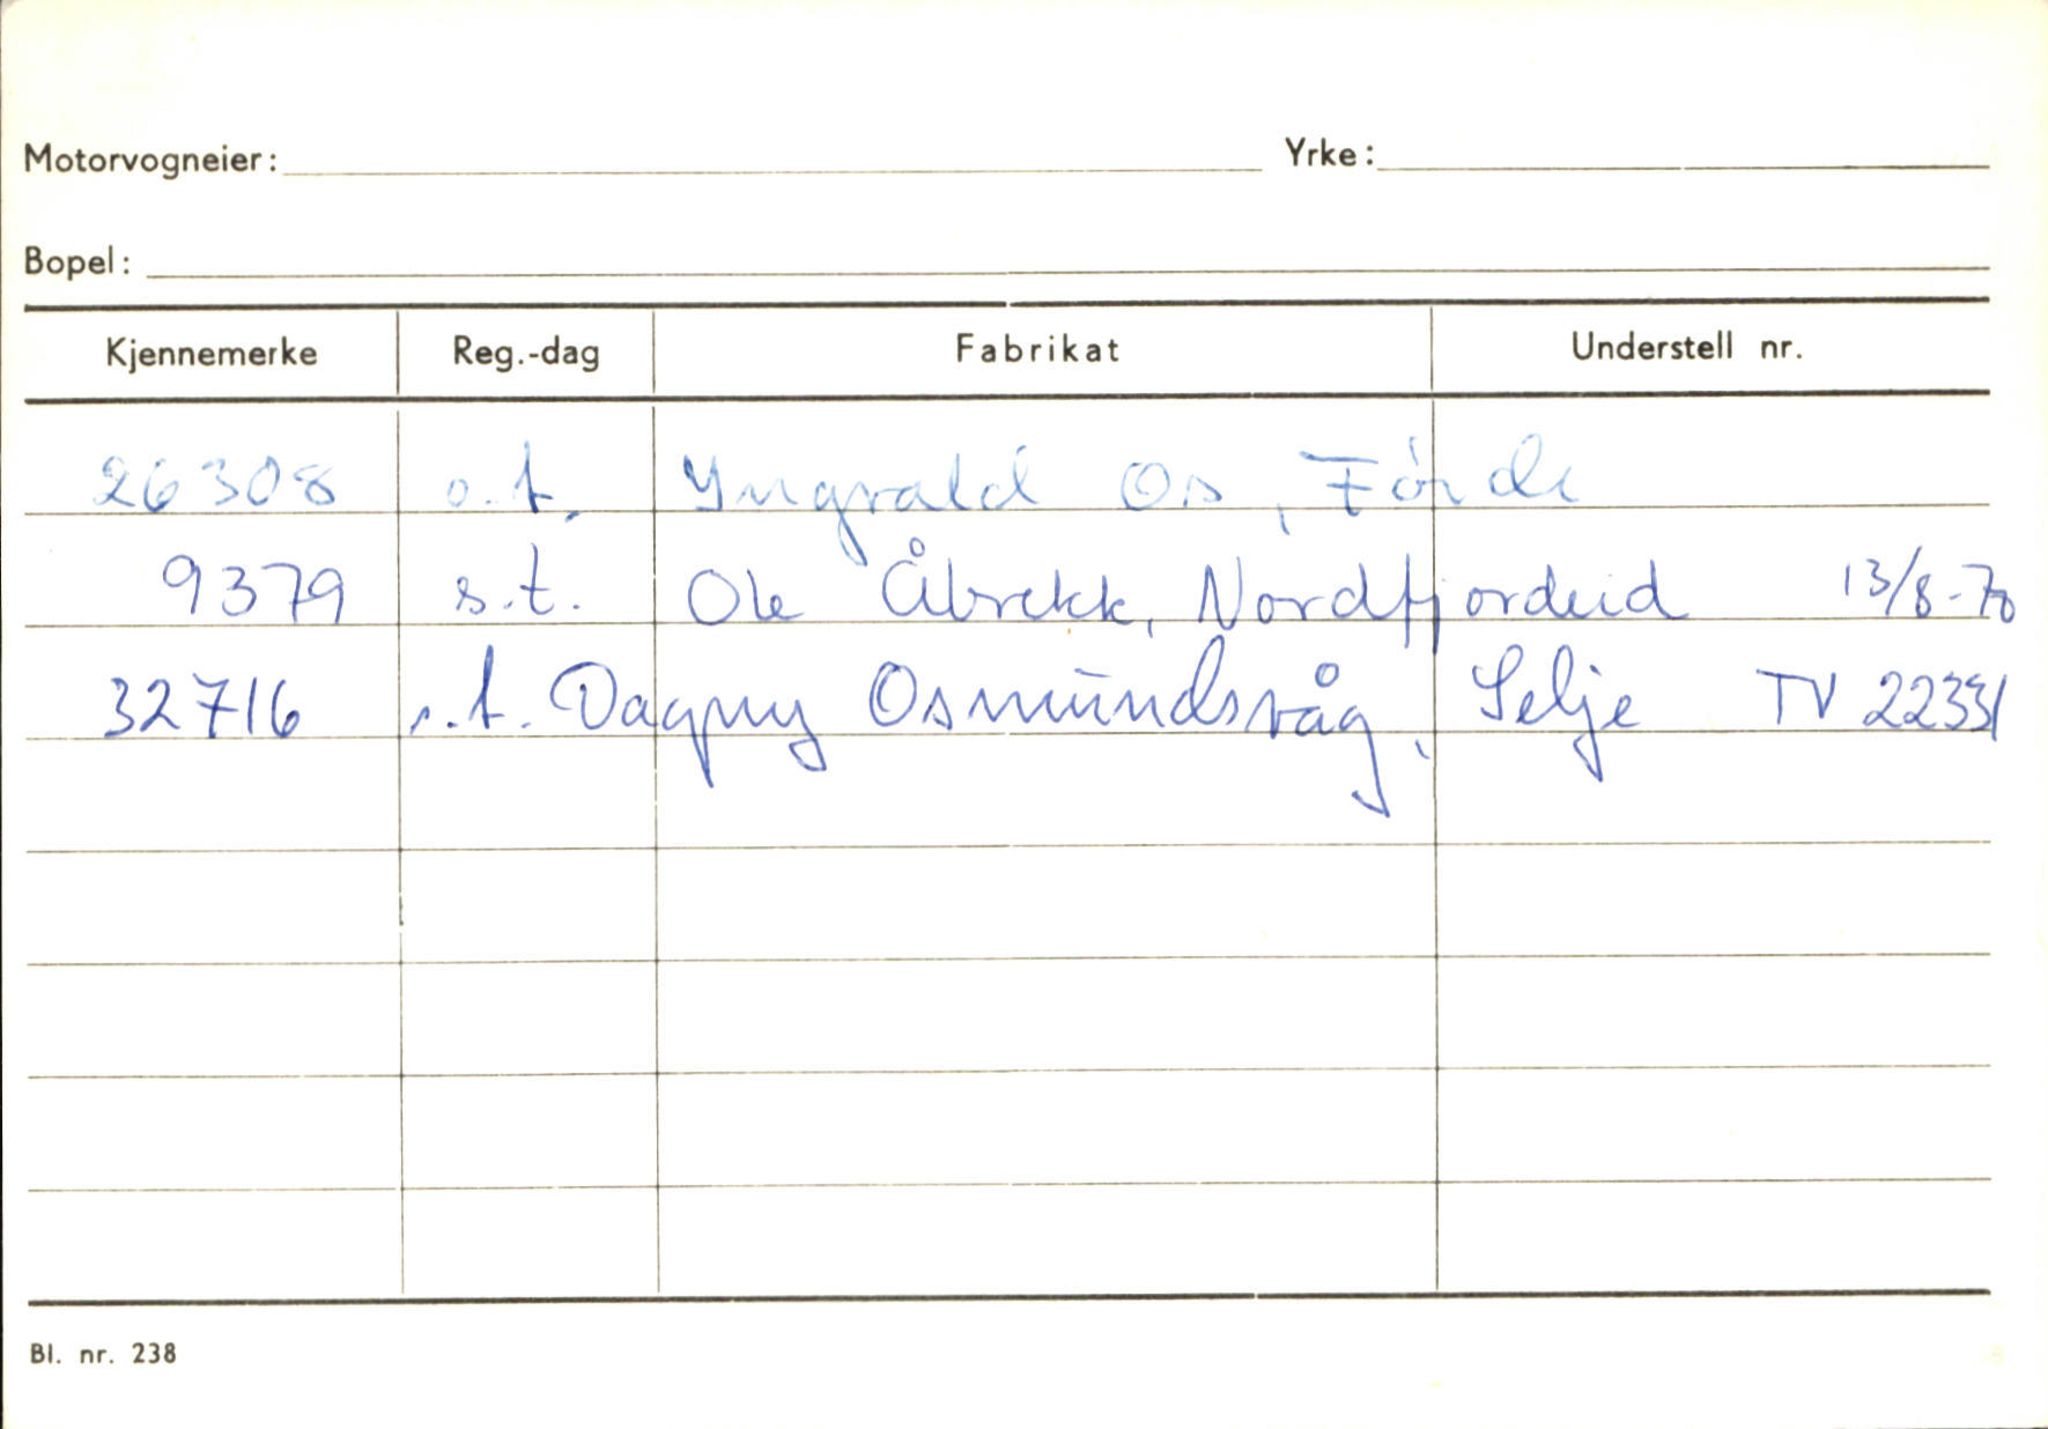 Motorvogneier: Yrke:
Bopel:
Kjennemerke Reg.-dag Fabrikat Understell nr.
26308 s.t. Yngvald Os, Førde
9379 s.t. Ole Åbrekk, Nordfjordeid 13/8-70
32716 s.t. Dagny Osmundsvåg, Selje TV 22331
Bl. nr. 238